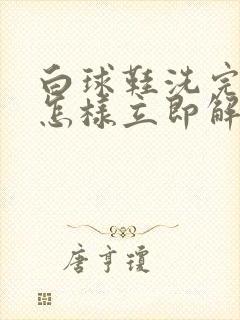 白球鞋洗完
怎样立即解
唐亨琼